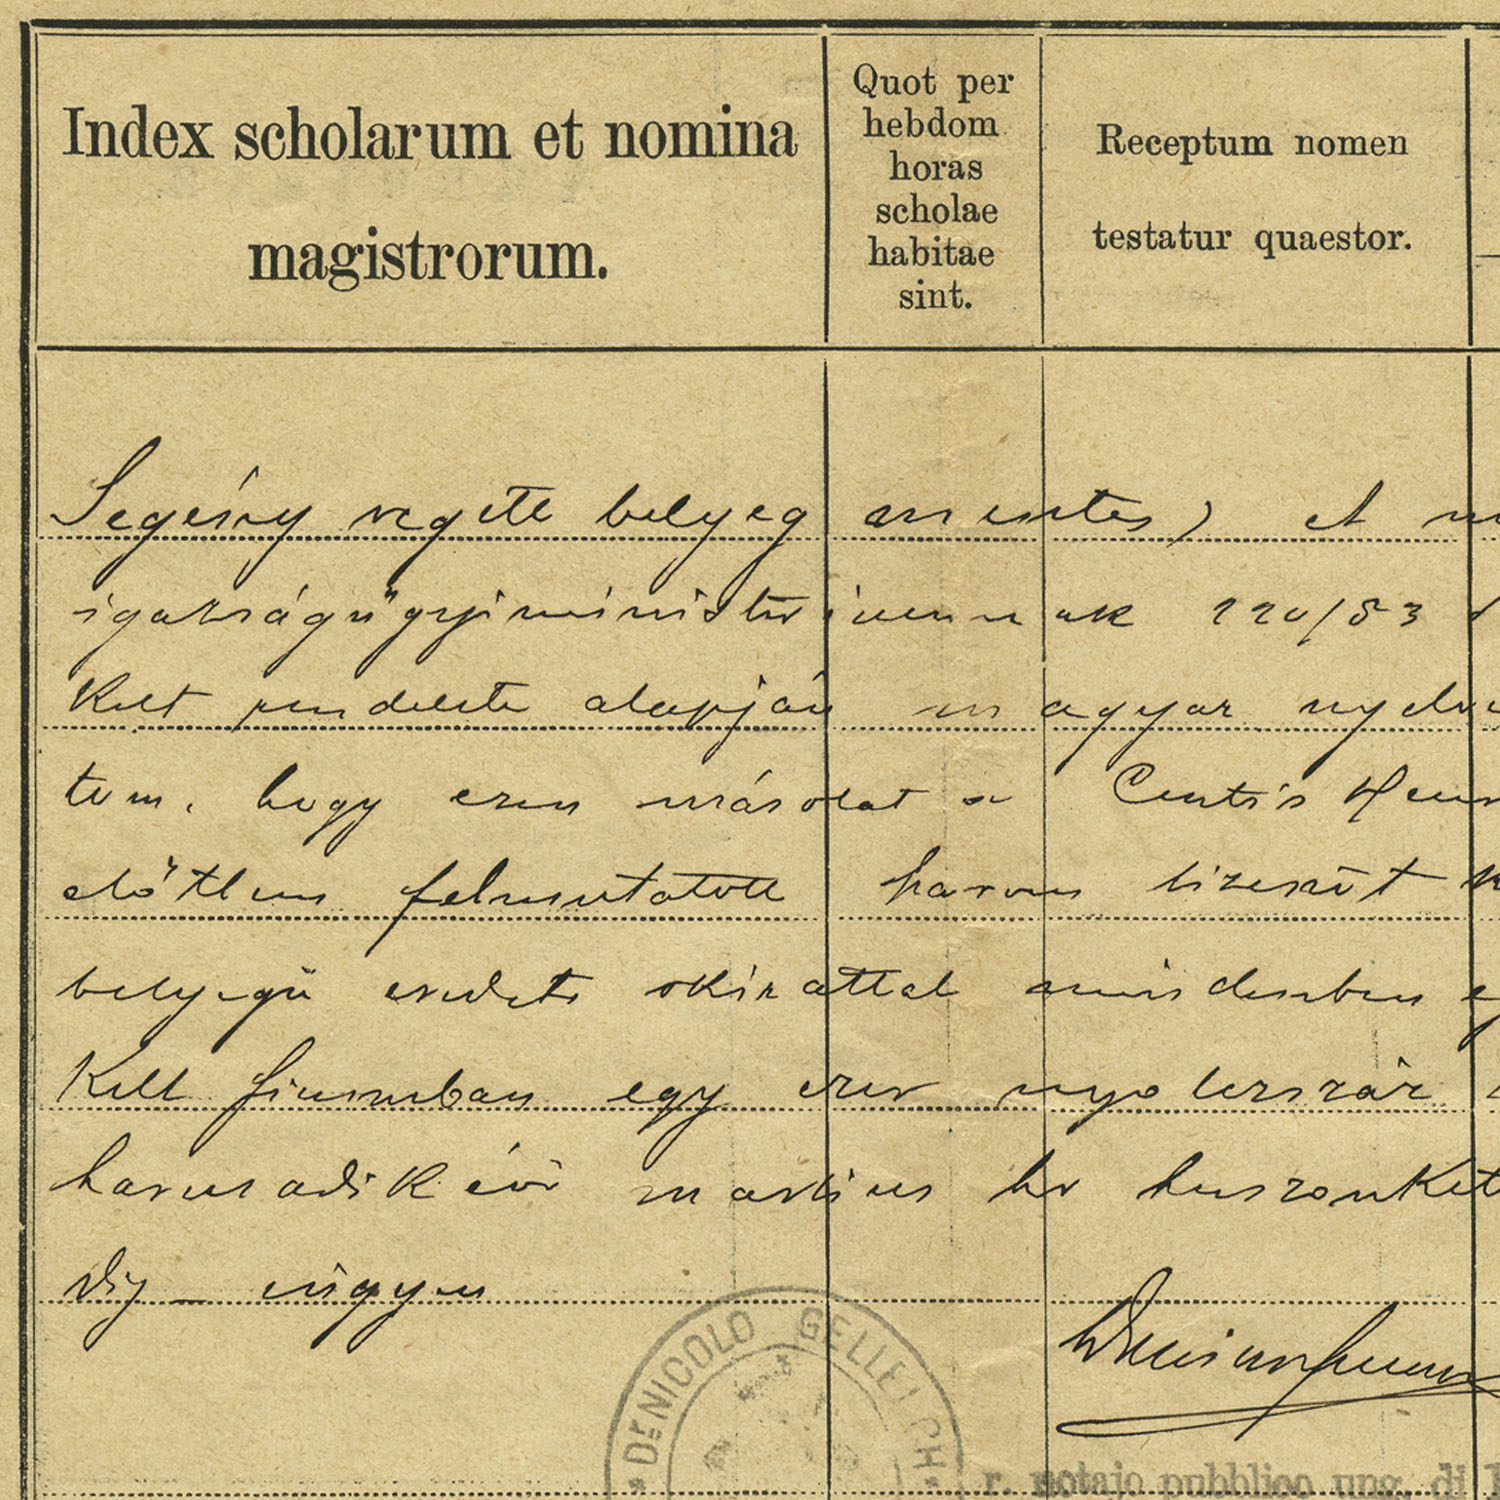 Index scholarum et nomina
magistrorum.
Quot per
hebdom
horas
scholae
habitae
sint.
Receptum nomen
testatur quaestor.
Segény végett belyeg mentes) A
igazságügyiministeriumnak 220/83
kelt rendelete alapján magyar
tem, hogy ezen másolat a
előttem felmutatott három tizenöt
belyegü eredeti okirattal mindenben
Kelt fiumeban egy ezer nyolczszáz
harmadik évi martius hv huszonkét
dij — ingyen
DE NICOLO GELLETICH
r. notajo pubblico ung. di